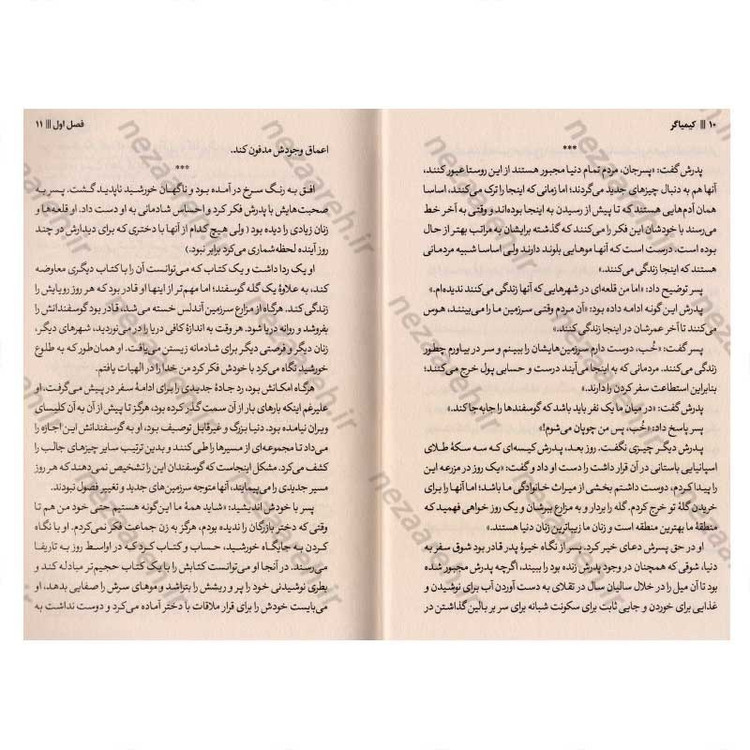 ۱۰ ||| کیمیاگر
***
پدرش گفت: «پسرجان، مردم تمام دنیا مجبور هستند از این روستا عبور کنند،
آنها هم به دنبال چیزهای جدید می‌گردند؛ اما زمانی که اینجا را ترک می‌کنند، اساسا
همان آدم‌هایی هستند که تا پیش از رسیدن به اینجا بوده‌اند و وقتی به آخر خط
می‌رسند با خودشان این فکر را می‌کنند که گذشته برایشان به مراتب بهتر از حال
بوده است. درست است که آنها موهایی بلوند دارند ولی اساسا شبیه مردمانی
هستند که اینجا زندگی می‌کنند.»
پسر توضیح داد: «اما من قلعه‌ای در شهرهایی که آنها زندگی می‌کنند ندیده‌ام.»
پدرش این گونه ادامه داده بود: «آن مردم وقتی سرزمین ما را می‌بینند، هوس
می‌کنند تا آخر عمرشان در اینجا زندگی کنند.»
پسر گفت: «خُب، دوست دارم سرزمین‌هایشان را ببینم و سر در بیاورم چطور
زندگی می‌کنند. مردمانی که به اینجا می‌آیند درست و حسابی پول خرج می‌کنند؛
بنابراین استطاعت سفر کردن را دارند.»
پدرش گفت: «در میان ما یک نفر باید باشد که گوسفندها را جابه‌جا کند.»
پسر پاسخ داد: «خُب، پس من چوپان می‌شوم!»
پدرش دیگر چیزی نگفت. روز بعد، پدرش کیسه‌ای که سه سکهٔ طلای
اسپانیایی باستانی در آن قرار داشت را دست او داد و گفت: «یک روز در مزرعه این
را پیدا کردم. دوست داشتم بخشی از میراث خانوادگی ما باشد؛ اما آنها را برای
خریدن گلهٔ تو خرج کردم. گله را بردار و به مزارع سرشان و یک روز خواهی فهمید که
منطقهٔ ما بهترین منطقه است و زنان ما زیباترین زنان دنیا هستند.»
او در حق پسرش دعای خیر کرد. پسر از نگاه خیرهٔ پدر قادر بود شوق سفر به
دنیا، شوقی که همچنان در وجود پدرش زنده بود را ببیند، اگرچه پدرش مجبور شده
بود تا آن میل را در خلال سالیان سال در تقلای به دست آوردن آب برای نوشیدن و
غذایی برای خوردن و جایی ثابت برای سکونت شبانه برای سر بر بالین گذاشتن در
فصل اول ||| ۱۱
اعماق وجودش مدفون کند.
***
افق به رنگ سرخ در آمده بود و ناگهان خورشید ناپدید گشت. پسر به
صحبت‌هایش با پدرش فکر کرد و احساس شادمانی به او دست داد. او قلعه‌ها و
زنان زیادی را دیده بود (ولی هیچ کدام از آنها با دختری که برای دیدارش در چند
روز آینده لحظه‌شماری می‌کرد برابر نبود.)
او یک ردا داشت و یک کتاب که می‌توانست آن را با کتاب دیگری معاوضه
کند، به علاوهٔ یک گله گوسفند؛ اما مهم‌تر از اینها او قادر بود که هر روز رویایش را
زندگی کند. هرگاه از مزارع سرزمین آندلس خسته می‌شد، قادر بود گوسفندانش را
بفروشد و روانه دریا شود. هر وقت به اندازهٔ کافی دریا در می‌نوردید، شهرهای دیگر،
زنان دیگر و فرصتی دیگر برای شادمانه زیستن می‌یافت. او همان‌طور که به طلوع
خورشید نگاه می‌کرد با خودش فکر کرد من خدا را در الهیات یافتم.
هرگاه امکانش بود، رد جادهٔ جدیدی را برای ادامهٔ سفر در پیش می‌گرفت. او
علیرغم اینکه بارهای بار از آن سمت گذر کرده بود، هرگز تا پیش از آن به آن کلیسای
ویران نیامده بود. دنیا بزرگ و غیرقابل توصیف بود، او به گوسفندانش این اجازه را
می‌داد تا مجموعه‌ای از مسیرها را طی کنند و بدین ترتیب سایر چیزهای جالب را
کشف می‌کرد. مشکل اینجاست که گوسفندان این را تشخیص نمی‌دهند که هر روز
مسیر جدیدی را می‌پیمایند، آنها متوجه سرزمین‌های جدید و تغییر فصول نبودند.
پسر با خودش اندیشید: «شاید همهٔ ما این‌گونه هستیم حتی خود من هم تا
وقتی که دختر بازرگان را ندیده بودم، هرگز به زن جماعت فکر نمی‌کردم. او با نگاه
کردن به جایگاه خورشید، حساب و کتاب کرد که در اواسط روز به تاریفا
می‌رسند. در آنجا او می‌توانست کتابش را با یک کتاب حجیم‌تر مبادله کند و
بطری نوشیدنی خود را پر و ریشش را بتراشد و موهای سرش را صفایی بدهد. او
می‌بایست خودش را برای قرار ملاقات با دختر آماده می‌کرد و دوست نداشت به
nezaareh.ir